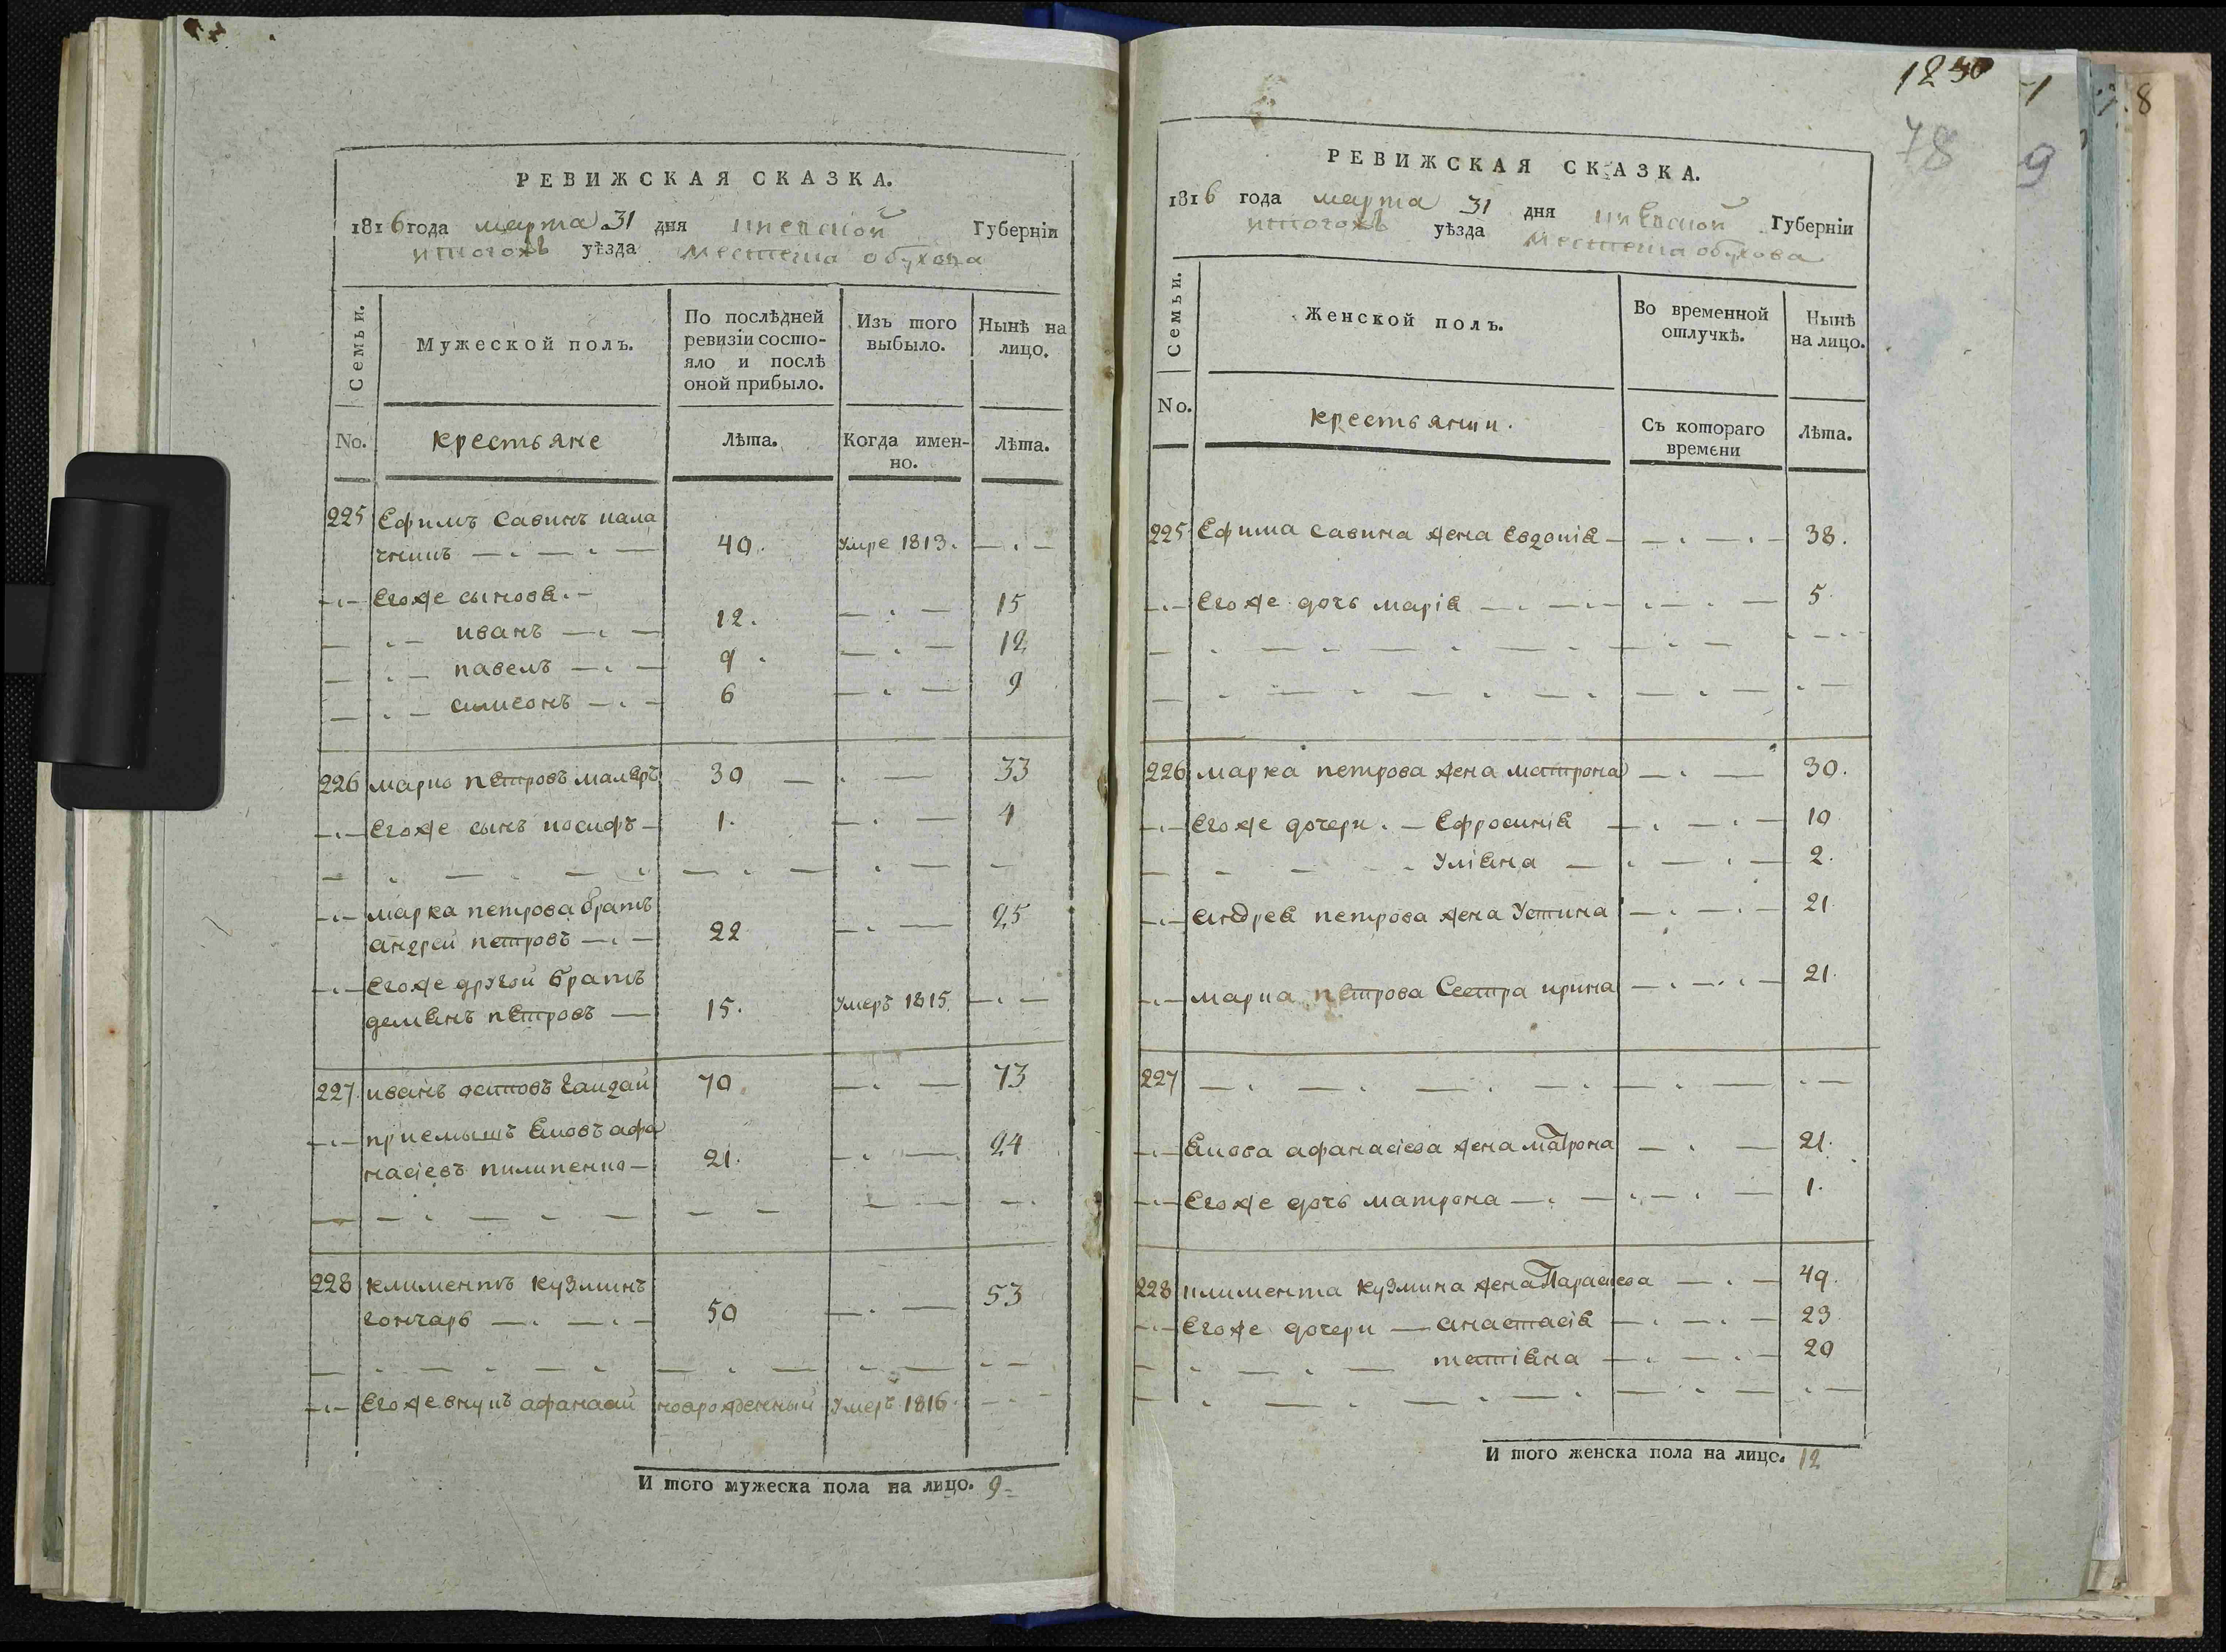 РЕВИЖСКАЯ СКАЗКА.
1816 года марта 31 дня киевской Губерніи
того жъ уѣзда местечка обухова
Семьи.
Мужеской полъ.
По послѣдней ревизіи состо-
яло и послѣ
оной прибыло.
Изъ того
выбыло.
Нынѣ на
лицо.
No.
крестьяне
Лѣта.
Когда имен-
но.
Лѣта.
225 Ефимъ Савинъ
40. Умре 1813.
Егоже сыновя
иванъ 12. 15
павелъ 9. 12
симеонъ 6 9
226 марко петровъ маляръ 30 33
Егоже сынъ иосифъ 1. 4
марка петрова братъ
андрей петровъ 22 25
Егоже другой братъ
демянъ петровъ 15. Умеръ 1815
227 иванъ остповъ гайдай 70. 73
приемышъ яковъ афа
насіевъ пилипенко 21. 24
228 климентъ кузминъ
гончаръ 50 53
Егоже внукъ афанасий новрожденный Умеръ 1816.
И того мужеска пола на лицо. 9
1230
78
РЕВИЖСКАЯ СКАЗКА.
1816 года марта 31 дня киевской Губерніи
того жъ уѣзда местечка обухова
Семьи.
Женской полъ.
Во временной
отлучкѣ.
Нынѣ
на лицо.
No.
крестьянки.
Съ котораго
времени
Лѣта.
225 Ефима Савина жена Евдокія 38.
Егоже дочь марія 5.
226 марка петрова жена матрона 30.
Егоже дочери. Ефросинія 10
Уліяна 2.
андрея петрова жена Устина 21.
марка петрова Сестра ирина 21.
227
якова афанасіева жена матрона 21.
Егоже дочь матрона 1.
228 климента кузмина жена Параскева 49.
Егоже дочери анастасія 23
татіяна 20
И того женска пола на лицо. 12